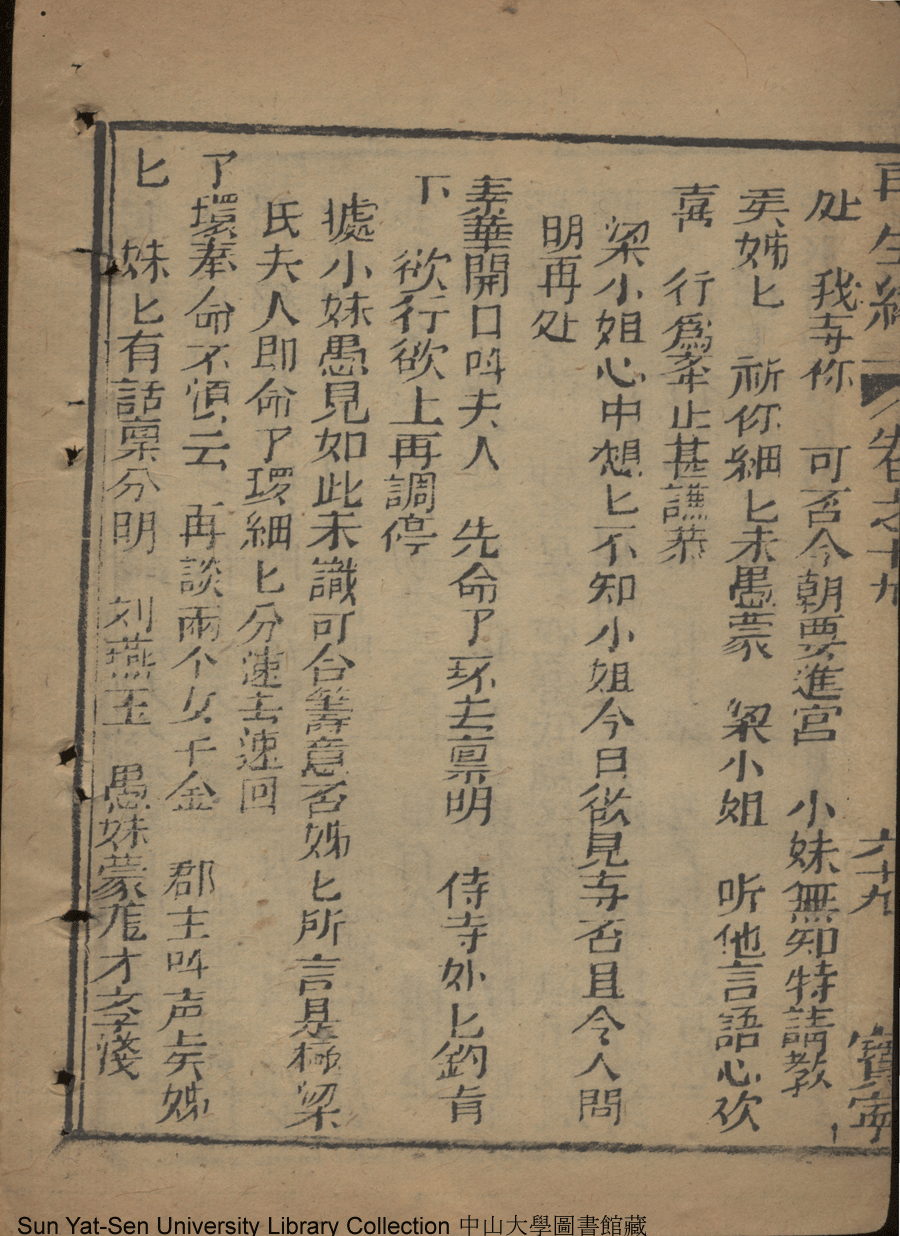 再生緣 卷之十九 六十九 寶寧
处 我等你 可否今朝要進宮 小妹無知特請教
矣姊匕 祈你細匕未愚蒙 梁小姐 听他言語心欢
喜 行為举止甚謙恭
梁小姐心中想匕不知小姐今日欲見等否且令人問
明再处
素華開口呌夫人 先命了环去禀明 侍等外匕鈞旨
下 欲行欲上再調停
㨿小妹愚見如此未識可合籌意否姊匕所言是極梁
氏夫人即命了環細匕分速去速回
了環奉命不慎云 再談兩个女千金 郡主呌声矣姊
匕 妹匕有話禀分明 刘燕玉 愚妹蒙尨才李淺
Sun Yat-Sen University Library Collection 中山大學圖書館藏